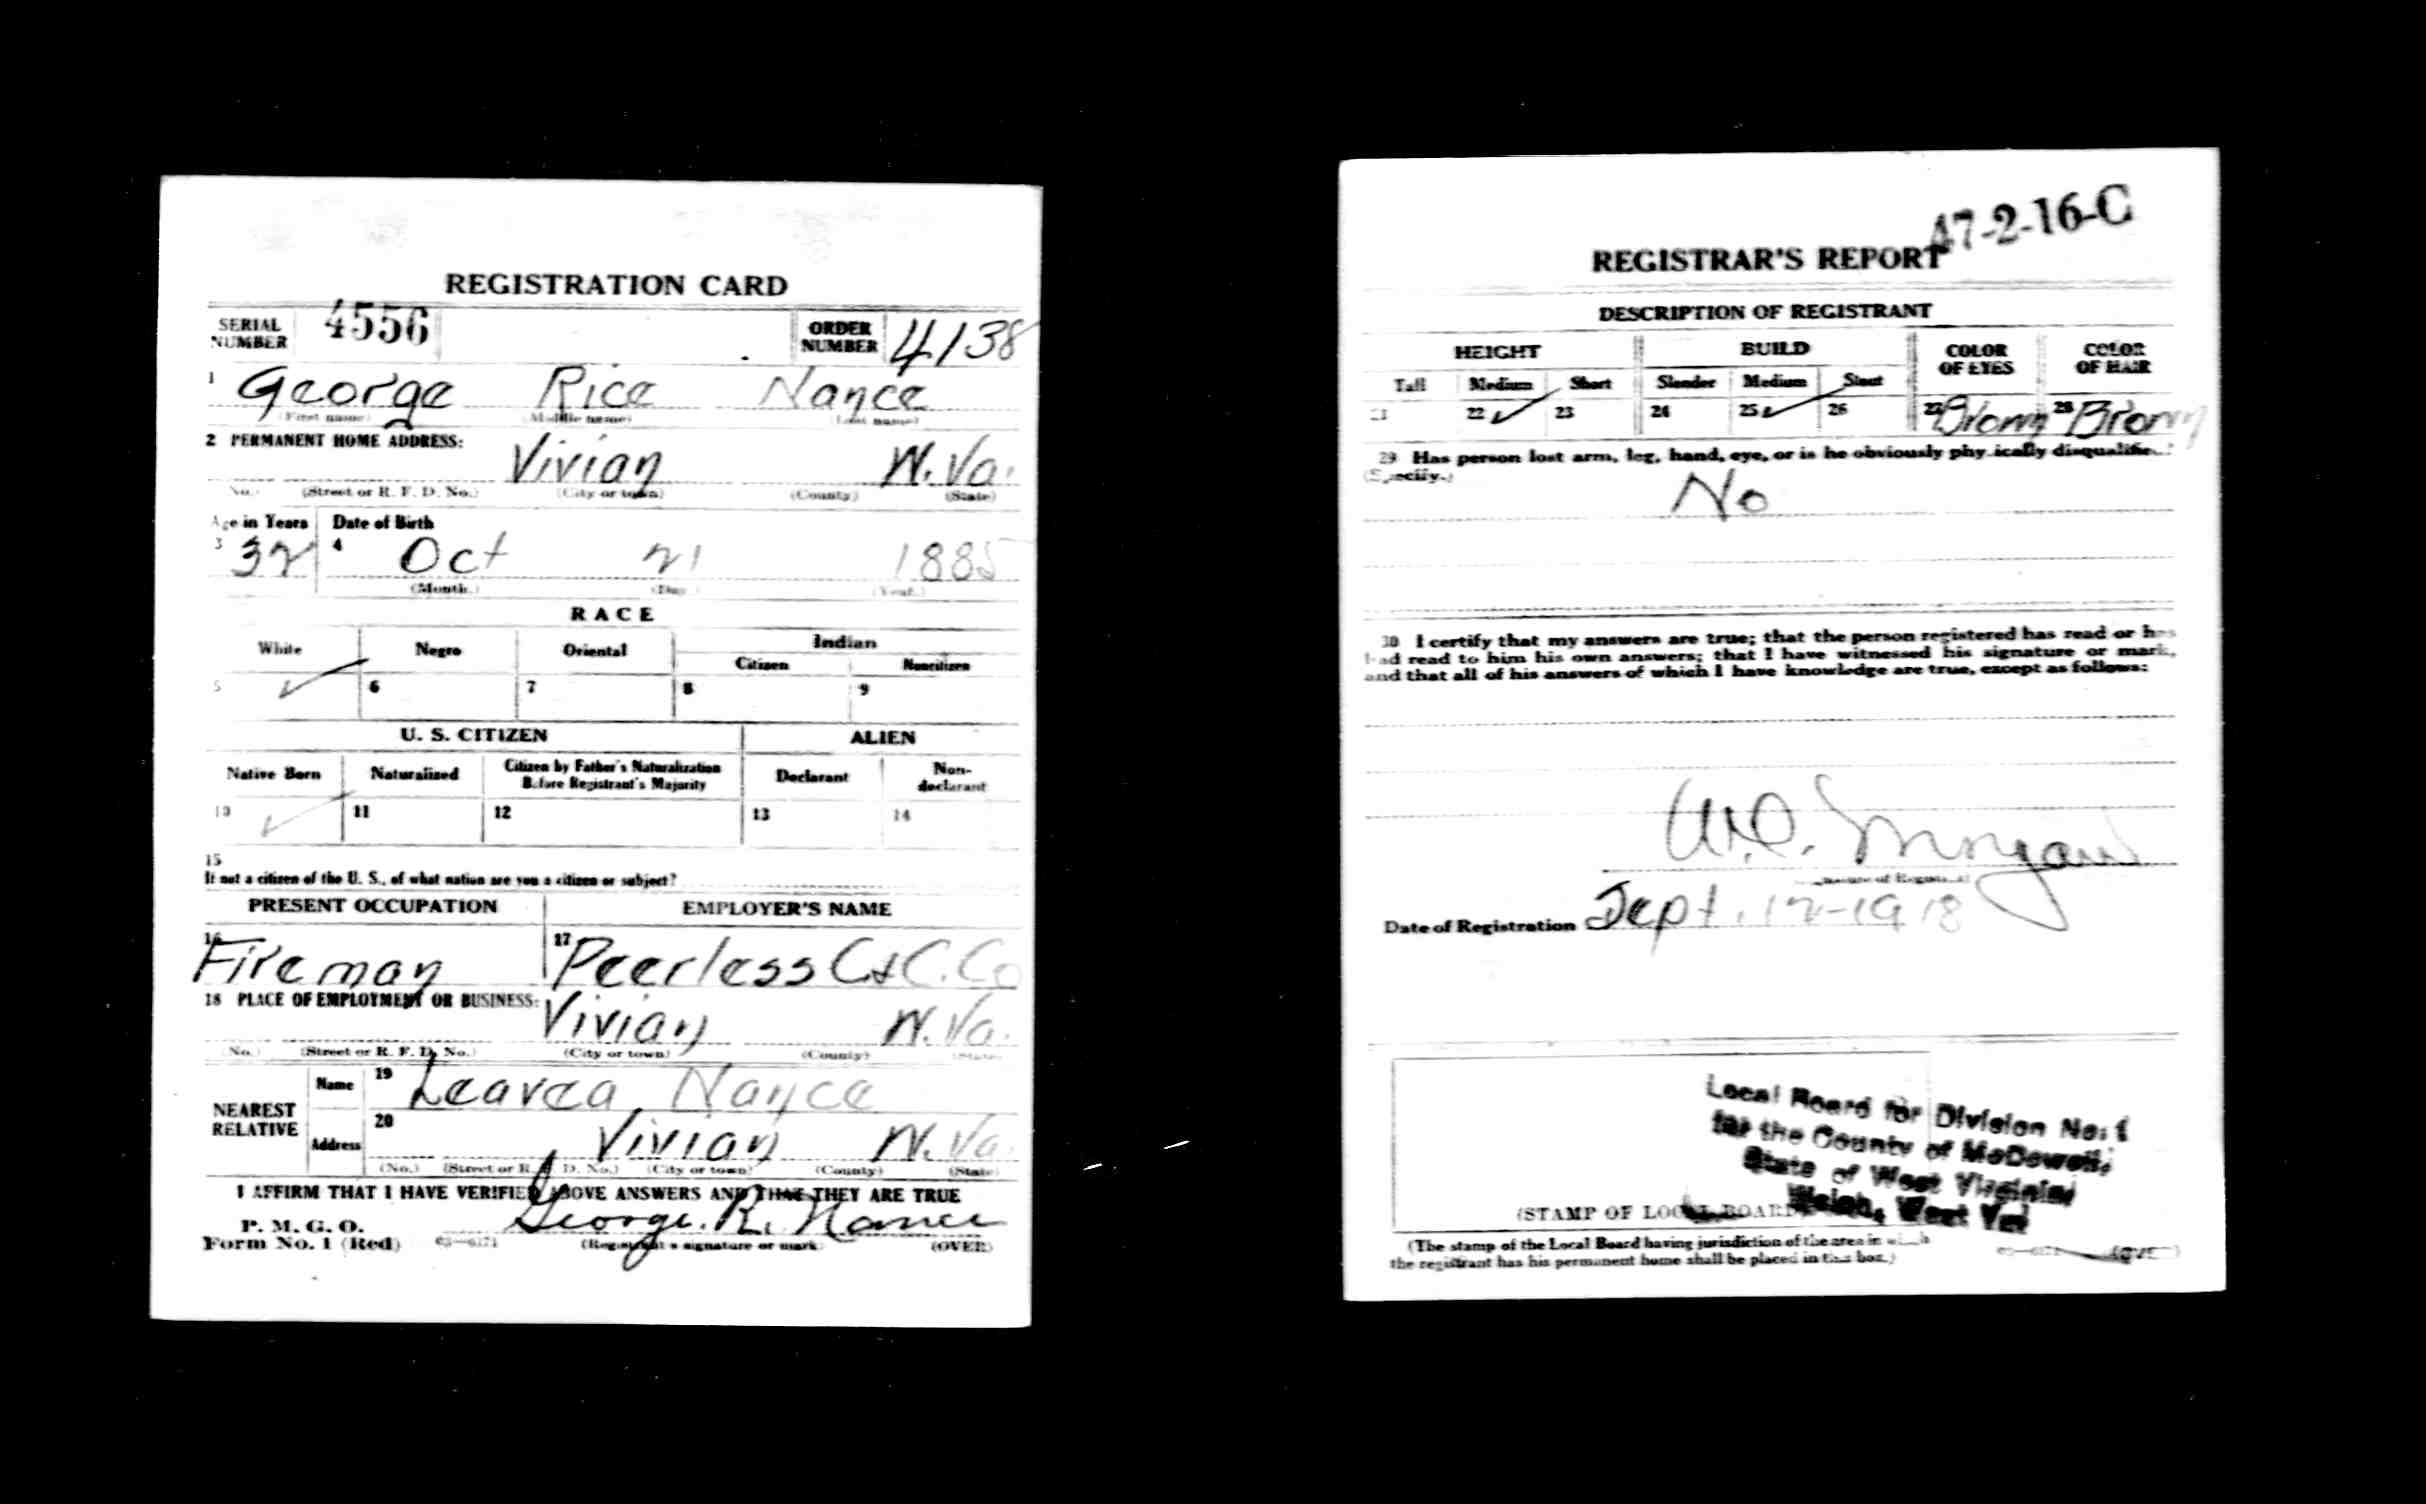 REGISTRATION CARD
SERIAL NUMBER 4556 ORDER NUMBER 4138
1 George Rice Nance
(First name) (Middle name) (Last name)
2 PERMANENT HOME ADDRESS:
Vivian W. Va.
(No.) (Street or R. F. D. No.) (City or town) (County) (State)
Age in Years Date of Birth
3 32 4 Oct 21 1885
(Month.) (Day.) (Year.)
RACE
White Negro Oriental Indian
Citizen Noncitizen
5 ✓ 6 7 8 9
U. S. CITIZEN ALIEN
Native Born Naturalized Citizen by Father's Naturalization Before Registrant's Majority Declarant Non-declarant
10 ✓ 11 12 13 14
15
If not a citizen of the U. S., of what nation are you a citizen or subject?
PRESENT OCCUPATION EMPLOYER'S NAME
16 Fireman 17 Peerless C & C. Co
18 PLACE OF EMPLOYMENT OR BUSINESS:
Vivian W. Va.
(No.) (Street or R. F. D. No.) (City or town) (County) (State)
NEAREST RELATIVE Name 19 Leavea Nance
Address 20 Vivian W. Va.
(No.) (Street or R. F. D. No.) (City or town) (County) (State)
I AFFIRM THAT I HAVE VERIFIED ABOVE ANSWERS AND THAT THEY ARE TRUE
P. M. G. O.
Form No. 1 (Red) 03—6171 George. R. Nance
(Registrant's signature or mark) (OVER)
47-2-16-C
REGISTRAR'S REPORT
DESCRIPTION OF REGISTRANT
HEIGHT BUILD COLOR OF EYES COLOR OF HAIR
Tall Medium Short Slender Medium Stout
21 22 ✓ 23 24 25 ✓ 26 27 Brown 28 Brown
29 Has person lost arm, leg, hand, eye, or is he obviously physically disqualified?
(Specify.)
No
30 I certify that my answers are true; that the person registered has read or has
had read to him his own answers; that I have witnessed his signature or mark,
and that all of his answers of which I have knowledge are true, except as follows:
Morgan
(Signature of Registrar)
Date of Registration Sept. 12-1918
Local Board for Division No. 1
for the County of McDowell,
State of West Virginia,
Welch, West Va.
(STAMP OF LOCAL BOARD)
(The stamp of the Local Board having jurisdiction of the area in which
the registrant has his permanent home shall be placed in this box.)
03—6171 (OVER)